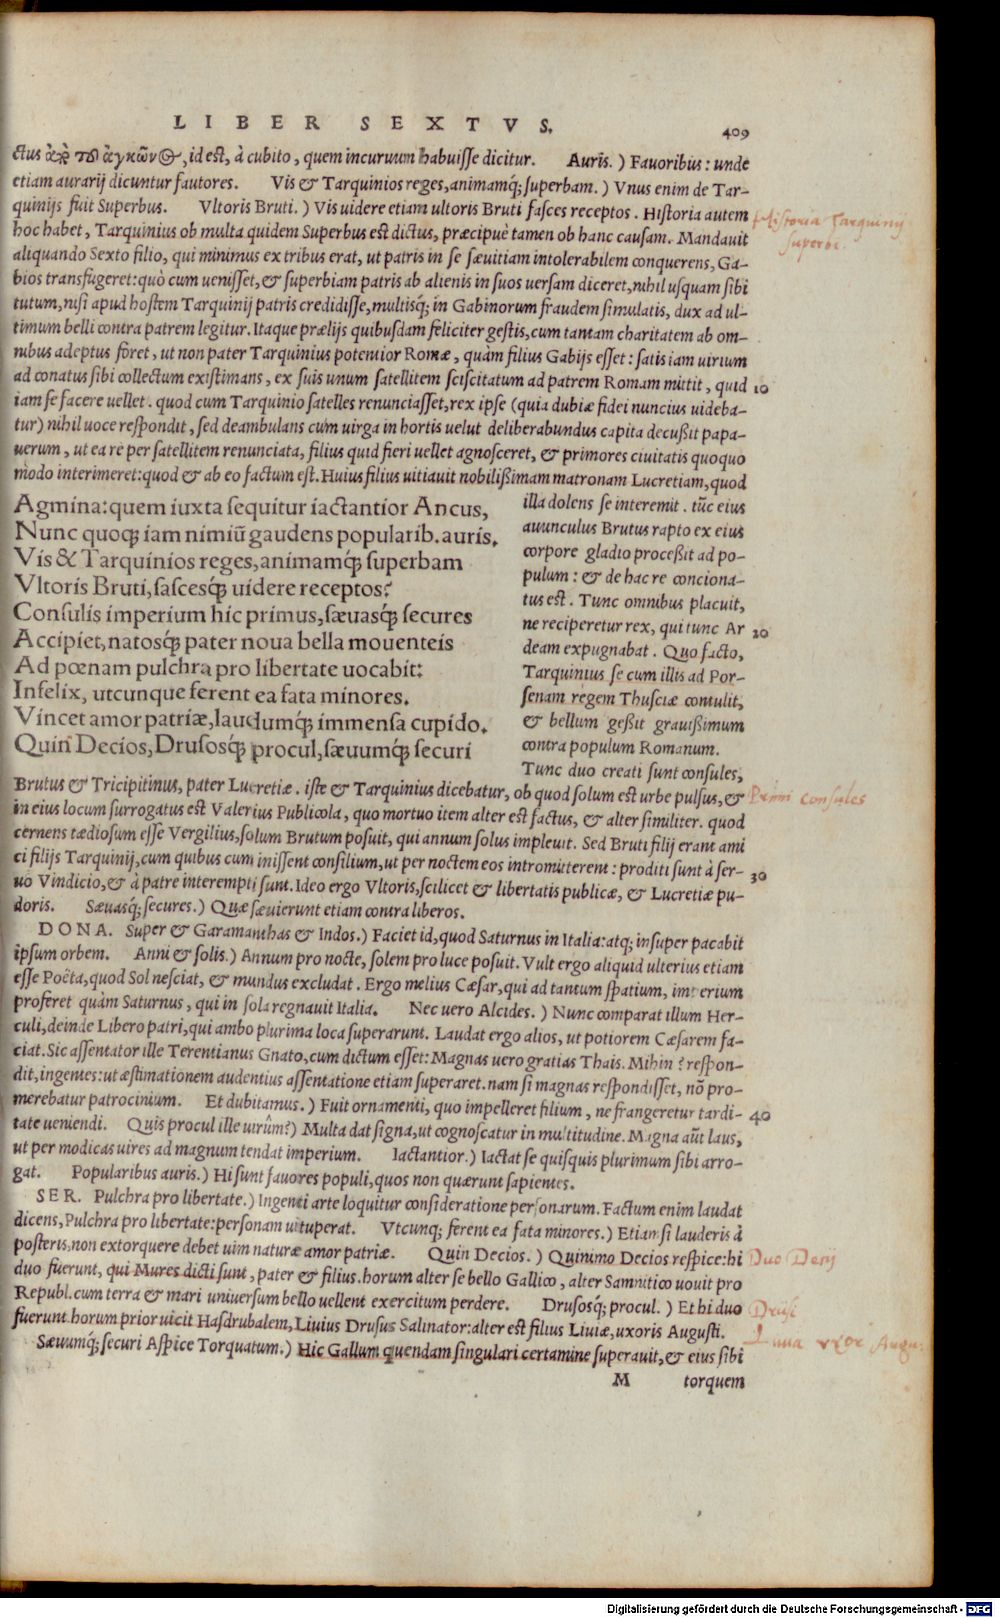 LIBER SEXTVS. 409
ctus ἀπὸ τοῦ ἀγκῶνος, id est, à cubito, quem incuruum habuisse dicitur. Auris.) Fauoribus: unde
etiam aurarij dicuntur fautores. Vis & Tarquinios reges, animamq́; superbam.) Vnus enim de Tar-
quinijs fuit Superbus. Vltoris Bruti.) Vis uidere etiam ultoris Bruti fasces receptos. Historia autem
Historia Tarquinij
superbi.
hoc habet, Tarquinius ob multa quidem Superbus est dictus, præcipuè tamen ob hanc causam. Mandauit
aliquando Sexto filio, qui minimus ex tribus erat, ut patris in se sæuitiam intolerabilem conquerens, Ga-
bios transfugeret: quò cum uenisset, & superbiam patris ab alienis in suos uersam diceret, nihil usquam sibi
tutum, nisi apud hostem Tarquinij patris credidisse, multisq́; in Gabinorum fraudem simulatis, dux ad ul-
timum belli contra patrem legitur. Itaque prælijs quibusdam feliciter gestis, cum tantam charitatem ab om-
nibus adeptus foret, ut non pater Tarquinius potentior Romæ, quàm filius Gabijs esset: satis iam uirium
ad conatus sibi collectum existimans, ex suis unum satellitem sciscitatum ad patrem Romam mittit, quid 10
iam se facere uellet. quod cum Tarquinio satelles renunciasset, rex ipse (quia dubiæ fidei nuncius uideba-
tur) nihil uoce respondit, sed deambulans cum uirga in hortis uelut deliberabundus capita decußit papa-
uerum, ut ea re per satellitem renunciata, filius quid fieri uellet agnosceret, & primores ciuitatis quoquo
modo interimeret: quod & ab eo factum est. Huius filius uitiauit nobilißimam matronam Lucretiam, quod
Agmina: quem iuxta sequitur iactantior Ancus,
Nunc quoq; iam nimiũ gaudens popularib. auris.
Vis & Tarquinios reges, animamq́; superbam
Vltoris Bruti, fascesq́; uidere receptos?
Consulis imperium hic primus, sæuasq́; secures
Accipiet, natosq́; pater noua bella mouenteis
Ad pœnam pulchra pro libertate uocabit:
Infelix, utcunque ferent ea fata minores.
Vincet amor patriæ, laudumq́; immensa cupido.
Quin Decios, Drusosq́; procul, sæuumq́; securi
illa dolens se interemit. tũc eius
auunculus Brutus rapto ex eius
corpore gladio proceßit ad po-
pulum: & de hac re conciona-
tus est. Tunc omnibus placuit,
ne reciperetur rex, qui tunc Ar 20
deam expugnabat. Quo facto,
Tarquinius se cum illis ad Por-
senam regem Thusciæ contulit,
& bellum geßit grauißimum
contra populum Romanum.
Tunc duo creati sunt consules,
Brutus & Tricipitinus, pater Lucretiæ. iste & Tarquinius dicebatur, ob quod solum est urbe pulsus, &
Primi consules
in eius locum surrogatus est Valerius Publicola, quo mortuo item alter est factus, & alter similiter. quod
cernens tædiosum esse Vergilius, solum Brutum posuit, qui annum solus impleuit. Sed Bruti filij erant ami
ci filijs Tarquinij, cum quibus cum inissent consilium, ut per noctem eos intromitterent: proditi sunt à ser- 30
uo Vindicio, & à patre interempti sunt. Ideo ergo Vltoris, scilicet & libertatis publicæ, & Lucretiæ pu-
doris. Sæuasq́; secures.) Quæ sæuierunt etiam contra liberos.
DONA. Super & Garamanthas & Indos.) Faciet id, quod Saturnus in Italia: atq; insuper pacabit
ipsum orbem. Anni & solis.) Annum pro nocte, solem pro luce posuit. Vult ergo aliquid ulterius etiam
esse Poëta, quod Sol nesciat, & mundus excludat. Ergo melius Cæsar, qui ad tantum spatium, imperium
proferet quàm Saturnus, qui in sola regnauit Italia. Nec uero Alcides.) Nunc comparat illum Her-
culi, deinde Libero patri, qui ambo plurima loca superarunt. Laudat ergo alios, ut potiorem Cæsarem fa-
ciat. Sic assentator ille Terentianus Gnato, cum dictum esset: Magnas uero gratias Thais. Mihin? respon-
dit, ingentes: ut æstimationem audentius assentatione etiam superaret. nam si magnas respondisset, nõ pro-
merebatur patrocinium. Et dubitamus.) Fuit ornamenti, quo impelleret filium, ne frangeretur tardi- 40
tate ueniendi. Quis procul ille uirûm?) Multa dat signa, ut cognoscatur in multitudine. Magna aũt laus,
ut per modicas uires ad magnum tendat imperium. Iactantior.) Iactat se quisquis plurimum sibi arro-
gat. Popularibus auris.) Hi sunt fauores populi, quos non quærunt sapientes.
SER. Pulchra pro libertate.) Ingenti arte loquitur consideratione personarum. Factum enim laudat
dicens, Pulchra pro libertate: personam uituperat. Vtcunq; ferent ea fata minores.) Etiam si lauderis à
posteris, non extorquere debet uim naturæ amor patriæ. Quin Decios.) Quinimo Decios respice: hi
Duo Decij
duo fuerunt, qui Mures dicti sunt, pater & filius. horum alter se bello Gallico, alter Samnitico uouit pro
Republ. cum terra & mari uniuersum bello uellent exercitum perdere. Drusosq́; procul.) Et hi duo
Drusi
fuerunt. horum prior uicit Hasdrubalem, Liuius Drusus Salinator: alter est filius Liuiæ, uxoris Augusti.
Liuia vxor Augu:
Sæuumq́; securi Aspice Torquatum.) Hic Gallum quendam singulari certamine superauit, & eius sibi
M torquem
Digitalisierung gefördert durch die Deutsche Forschungsgemeinschaft - DFG